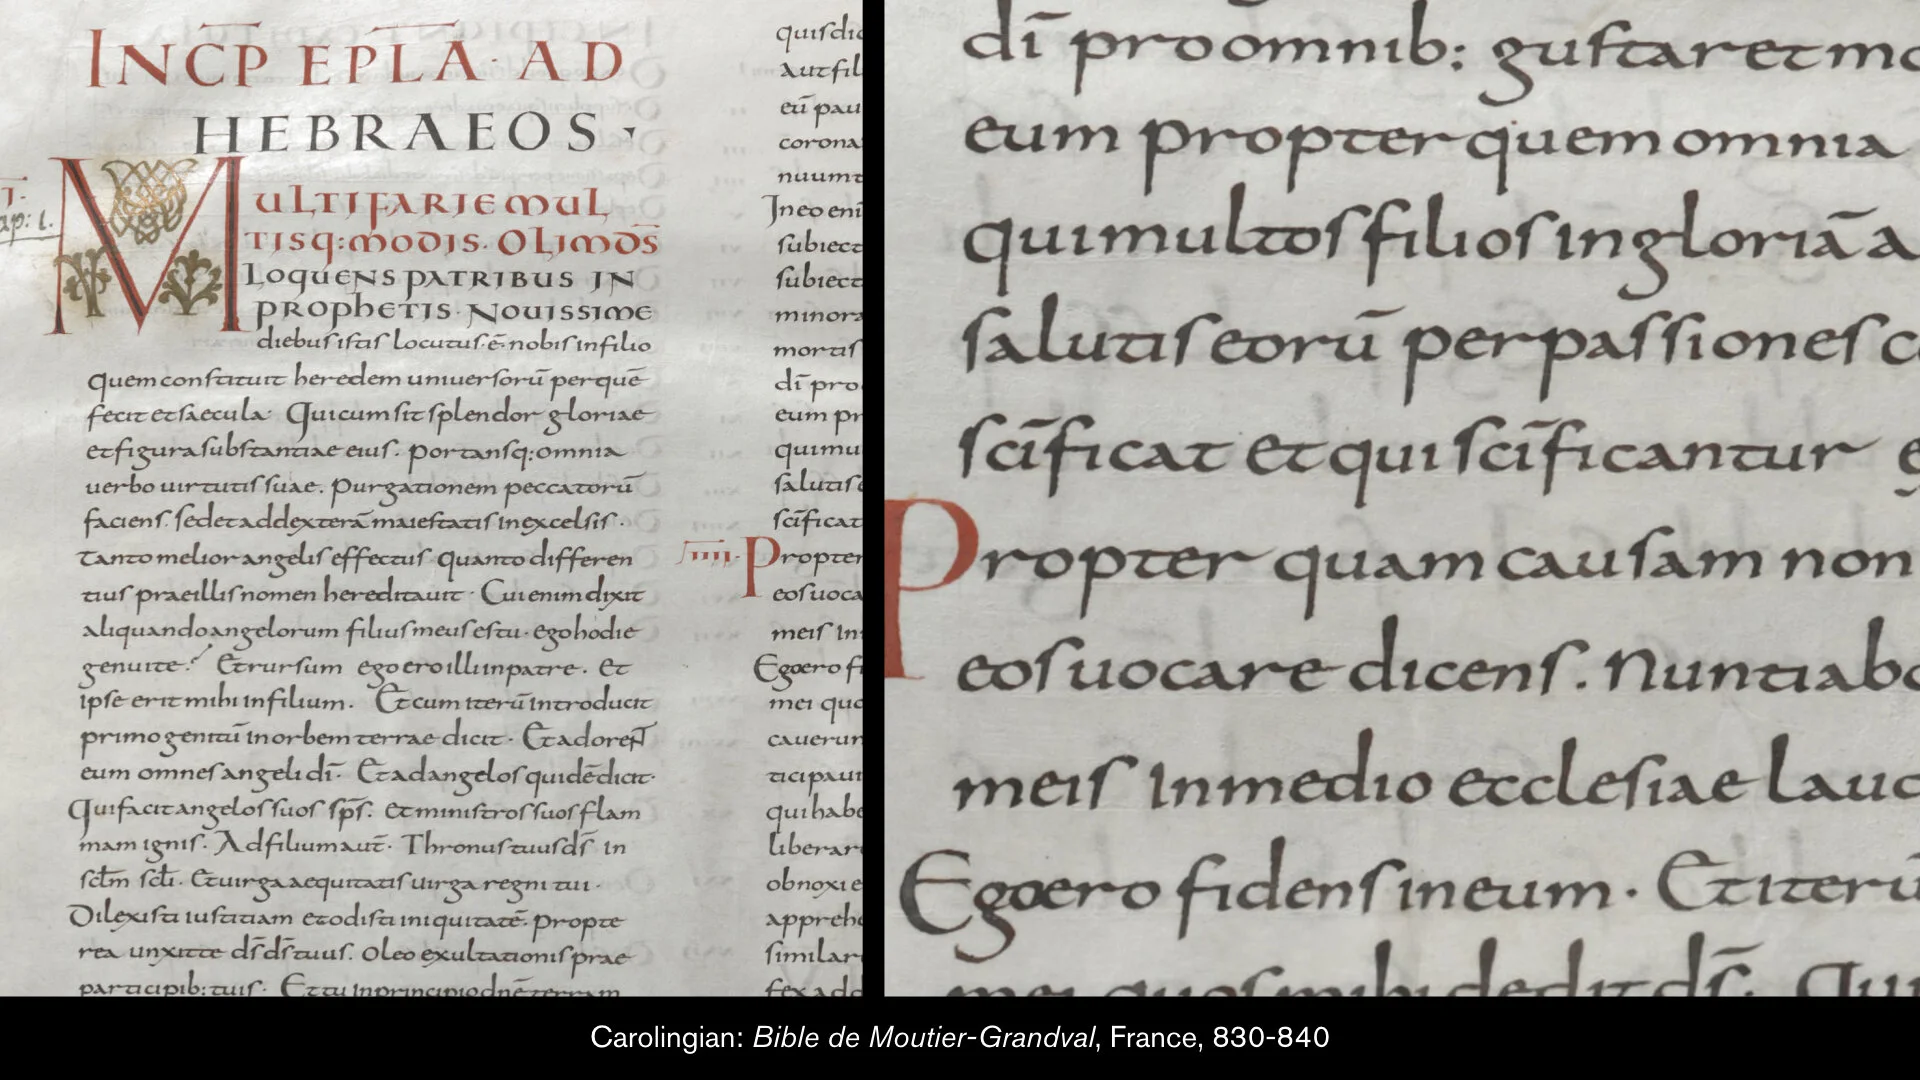 INCP̄ EPL̄A· AD
HEBRAEOS·
MULTIFARIE MUL
TISQ: MODIS· OLIM D̄S
LOQUENS PATRIBUS IN
PROPHETIS· NOUISSIME
diebus istis locutus ē nobis in filio
quem constituit heredem uniuersorū per quē
fecit et saecula· Qui cum sit splendor gloriae
et figura substantiae eius· portansq: omnia
uerbo uirtutis suae. purgationem peccatorū
faciens. sedet ad dexterā maiestatis in excelsis·
Tanto melior angelis effectus quanto differen
tius prae illis nomen hereditauit· Cui enim dixit
aliquando angelorum filius meus es tu· ego hodie
genui te· Et rursum ego ero illi in patre. et
ipse erit mihi in filium. Et cum iterū introducit
primogenitū in orbem terrae dicit· Et adorent
eum omnes angeli dī· Et ad angelos quidē dicit·
Qui facit angelos suos sp̄s. et ministros suos flam
mam ignis. Ad filium aut̄· Thronus tuus d̄s in
sclm̄ scl̄i· Et uirga aequitatis uirga regni tui·
Dilexisti iustitiam et odisti iniquitatē· propte
rea unxit te d̄s d̄s tuus. oleo exultationis prae
participib: tuis· Et tu in principio dn̄e terram
T·
ap: 1.
quis dic
aut fil
eū pau
corona
nuum
In eo eni
subiect
subiect
minora
mortis
dī pro
eum pr
quimu
salutis
scīficat
IIII· Propter
eos uoca
meis in
Ego ero fi
mei quo
cauerun
ticipaui
qui habe
liberar
obnoxi e
apprehe
similar
fex ad d
dī pro omnib: gustaret mo
eum propter quem omnia
qui multos filios in gloriā a
salutis eorū per passiones c
scīficat et qui scīficantur e
Propter quam causam non
eos uocare dicens. Nuntiabo
meis in medio ecclesiae lauc
Ego ero fidens in eum. Et iterū
mei quos mihi dedit d̄s. Qui
Carolingian: Bible de Moutier-Grandval, France, 830-840